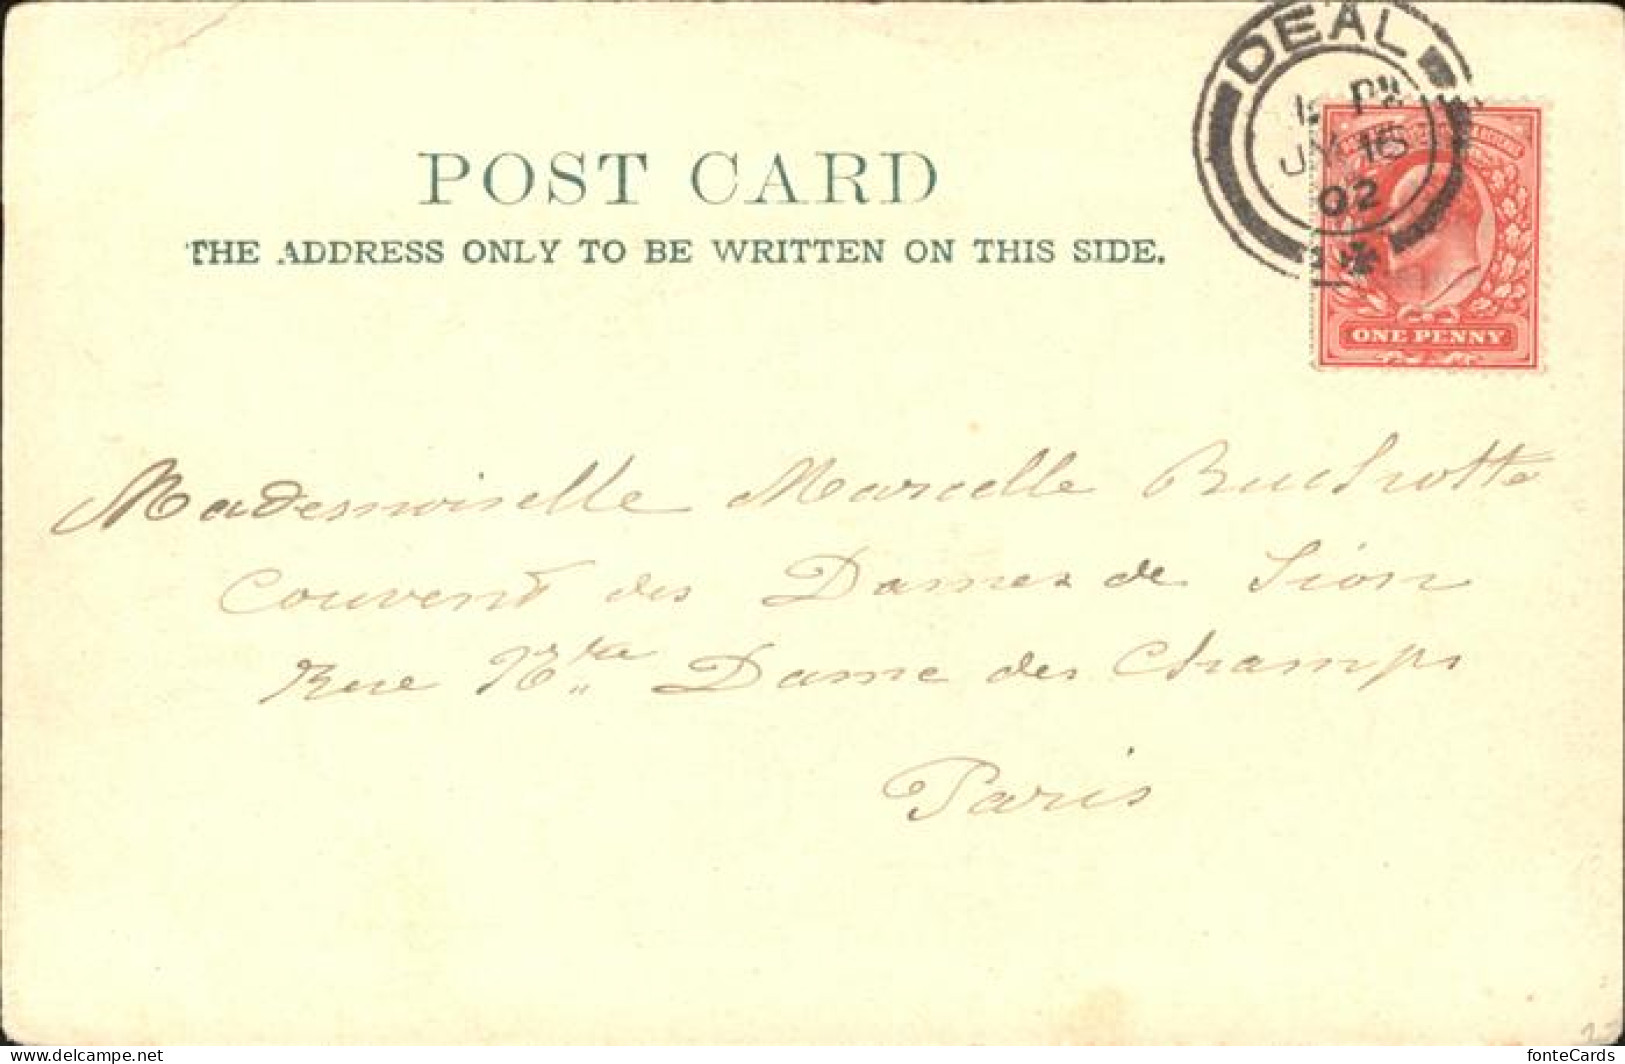 DEAL
JN 16
02
POST CARD
THE ADDRESS ONLY TO BE WRITTEN ON THIS SIDE.
ONE PENNY
Mademoiselle Marcelle Buchotte
Couvent des Dames de Sion
Rue Ntre Dame des Champs
Paris
https://www.delcampe.net
fonteCards